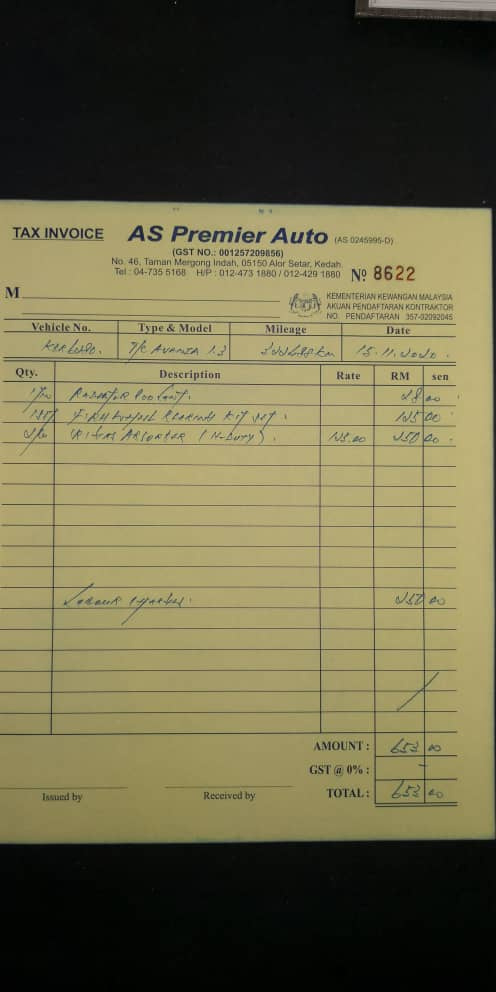 TAX INVOICE AS Premier Auto (AS 0245995-D)
(GST NO.: 001257209856)
No. 46, Taman Mergong Indah, 05150 Alor Setar, Kedah.
Tel : 04-735 5168 H/P : 012-473 1880 / 012-429 1880 Nº 8622
M
KEMENTERIAN KEWANGAN MALAYSIA
AKUAN PENDAFTARAN KONTRAKTOR
NO. PENDAFTARAN 357-02092045
Vehicle No. Type & Model Mileage Date
T/C AVANZA 1.3 15.11.2020.
Qty. Description Rate RM sen
RADIATOR COOLANT. 28 00
BEARING KIT SET. 125 00
ABSORBER (H-DUTY). 125.00 250 00
LABOUR CHARGES. 250 00
AMOUNT : 653 00
GST @ 0% : -
TOTAL : 653 00
Issued by Received by